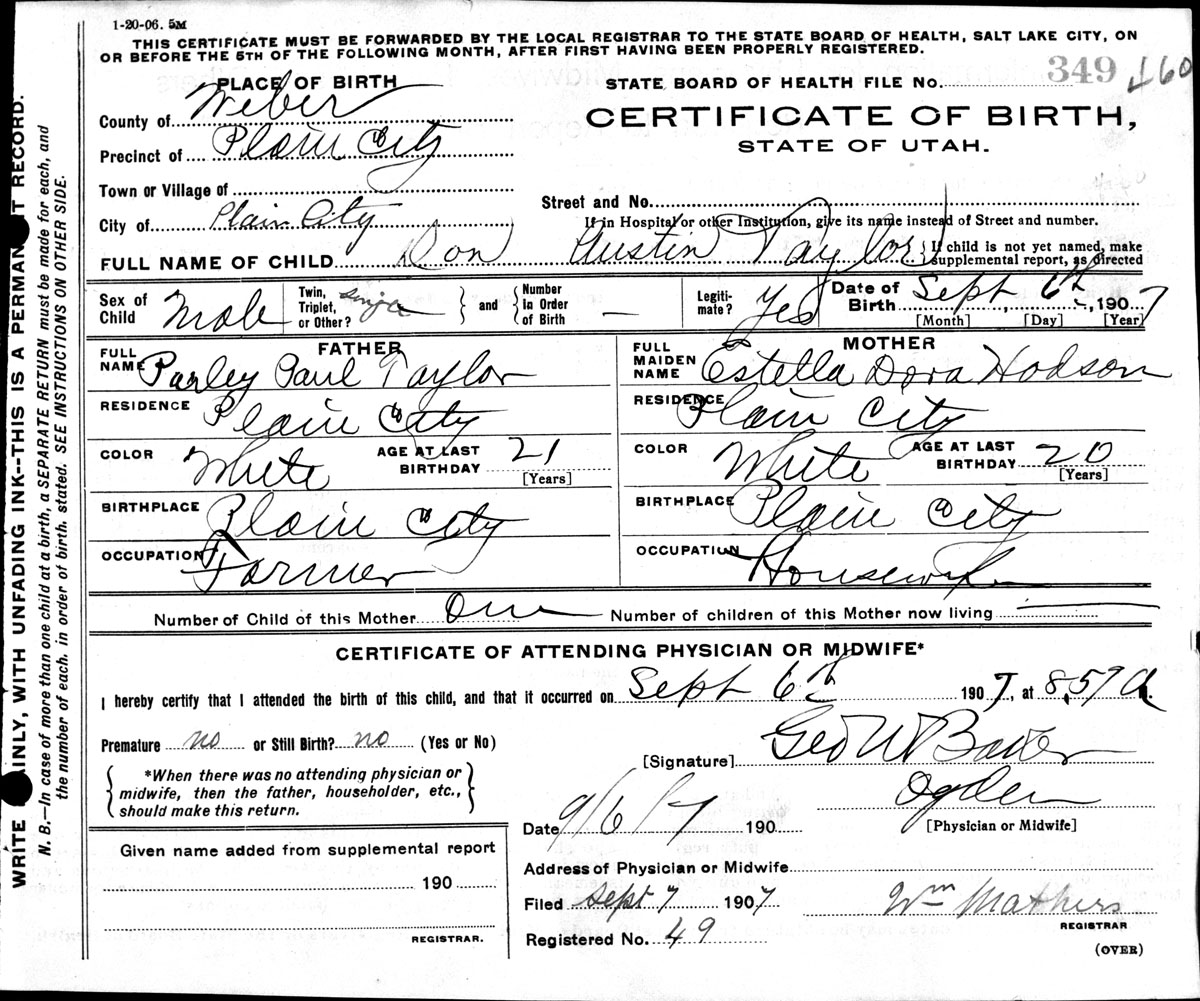 1-20-06. 5M
THIS CERTIFICATE MUST BE FORWARDED BY THE LOCAL REGISTRAR TO THE STATE BOARD OF HEALTH, SALT LAKE CITY, ON
OR BEFORE THE 5TH OF THE FOLLOWING MONTH, AFTER FIRST HAVING BEEN PROPERLY REGISTERED.
WRITE PLAINLY, WITH UNFADING INK--THIS IS A PERMANENT RECORD.
N. B.—In case of more than one child at a birth, a SEPARATE RETURN must be made for each, and
the number of each, in order of birth, stated. SEE INSTRUCTIONS ON OTHER SIDE.
PLACE OF BIRTH
County of Weber
Precinct of Plain City
Town or Village of
City of Plain City
STATE BOARD OF HEALTH FILE No. 349 160
CERTIFICATE OF BIRTH,
STATE OF UTAH.
Street and No.
If in Hospital or other Institution, give its name instead of Street and number.
FULL NAME OF CHILD Don Austin Taylor { If child is not yet named, make
supplemental report, as directed
Sex of Child Male
Twin, Triplet, or Other? Single } and { Number In Order of Birth —
Legiti-mate? Yes
Date of Birth Sept 6th, 1907
[Month] [Day] [Year]
FATHER
FULL NAME Parley Paul Taylor
RESIDENCE Plain City
COLOR White AGE AT LAST BIRTHDAY 21
[Years]
BIRTHPLACE Plain City
OCCUPATION Farmer
MOTHER
FULL MAIDEN NAME Estella Dora Hodson
RESIDENCE Plain City
COLOR White AGE AT LAST BIRTHDAY 20
[Years]
BIRTHPLACE Plain City
OCCUPATION Housewife
Number of Child of this Mother One Number of children of this Mother now living —
CERTIFICATE OF ATTENDING PHYSICIAN OR MIDWIFE*
I hereby certify that I attended the birth of this child, and that it occurred on Sept 6th 1907, at 8,57 a.
Premature no or Still Birth? no (Yes or No)
{ *When there was no attending physician or
midwife, then the father, householder, etc.,
should make this return. }
[Signature] Geo W Baker
Ogden
[Physician or Midwife]
Date 9/6/7 190
Given name added from supplemental report
190
REGISTRAR.
Address of Physician or Midwife
Filed Sept 7 1907 Wm Mathers
REGISTRAR
Registered No. 49
(OVER)